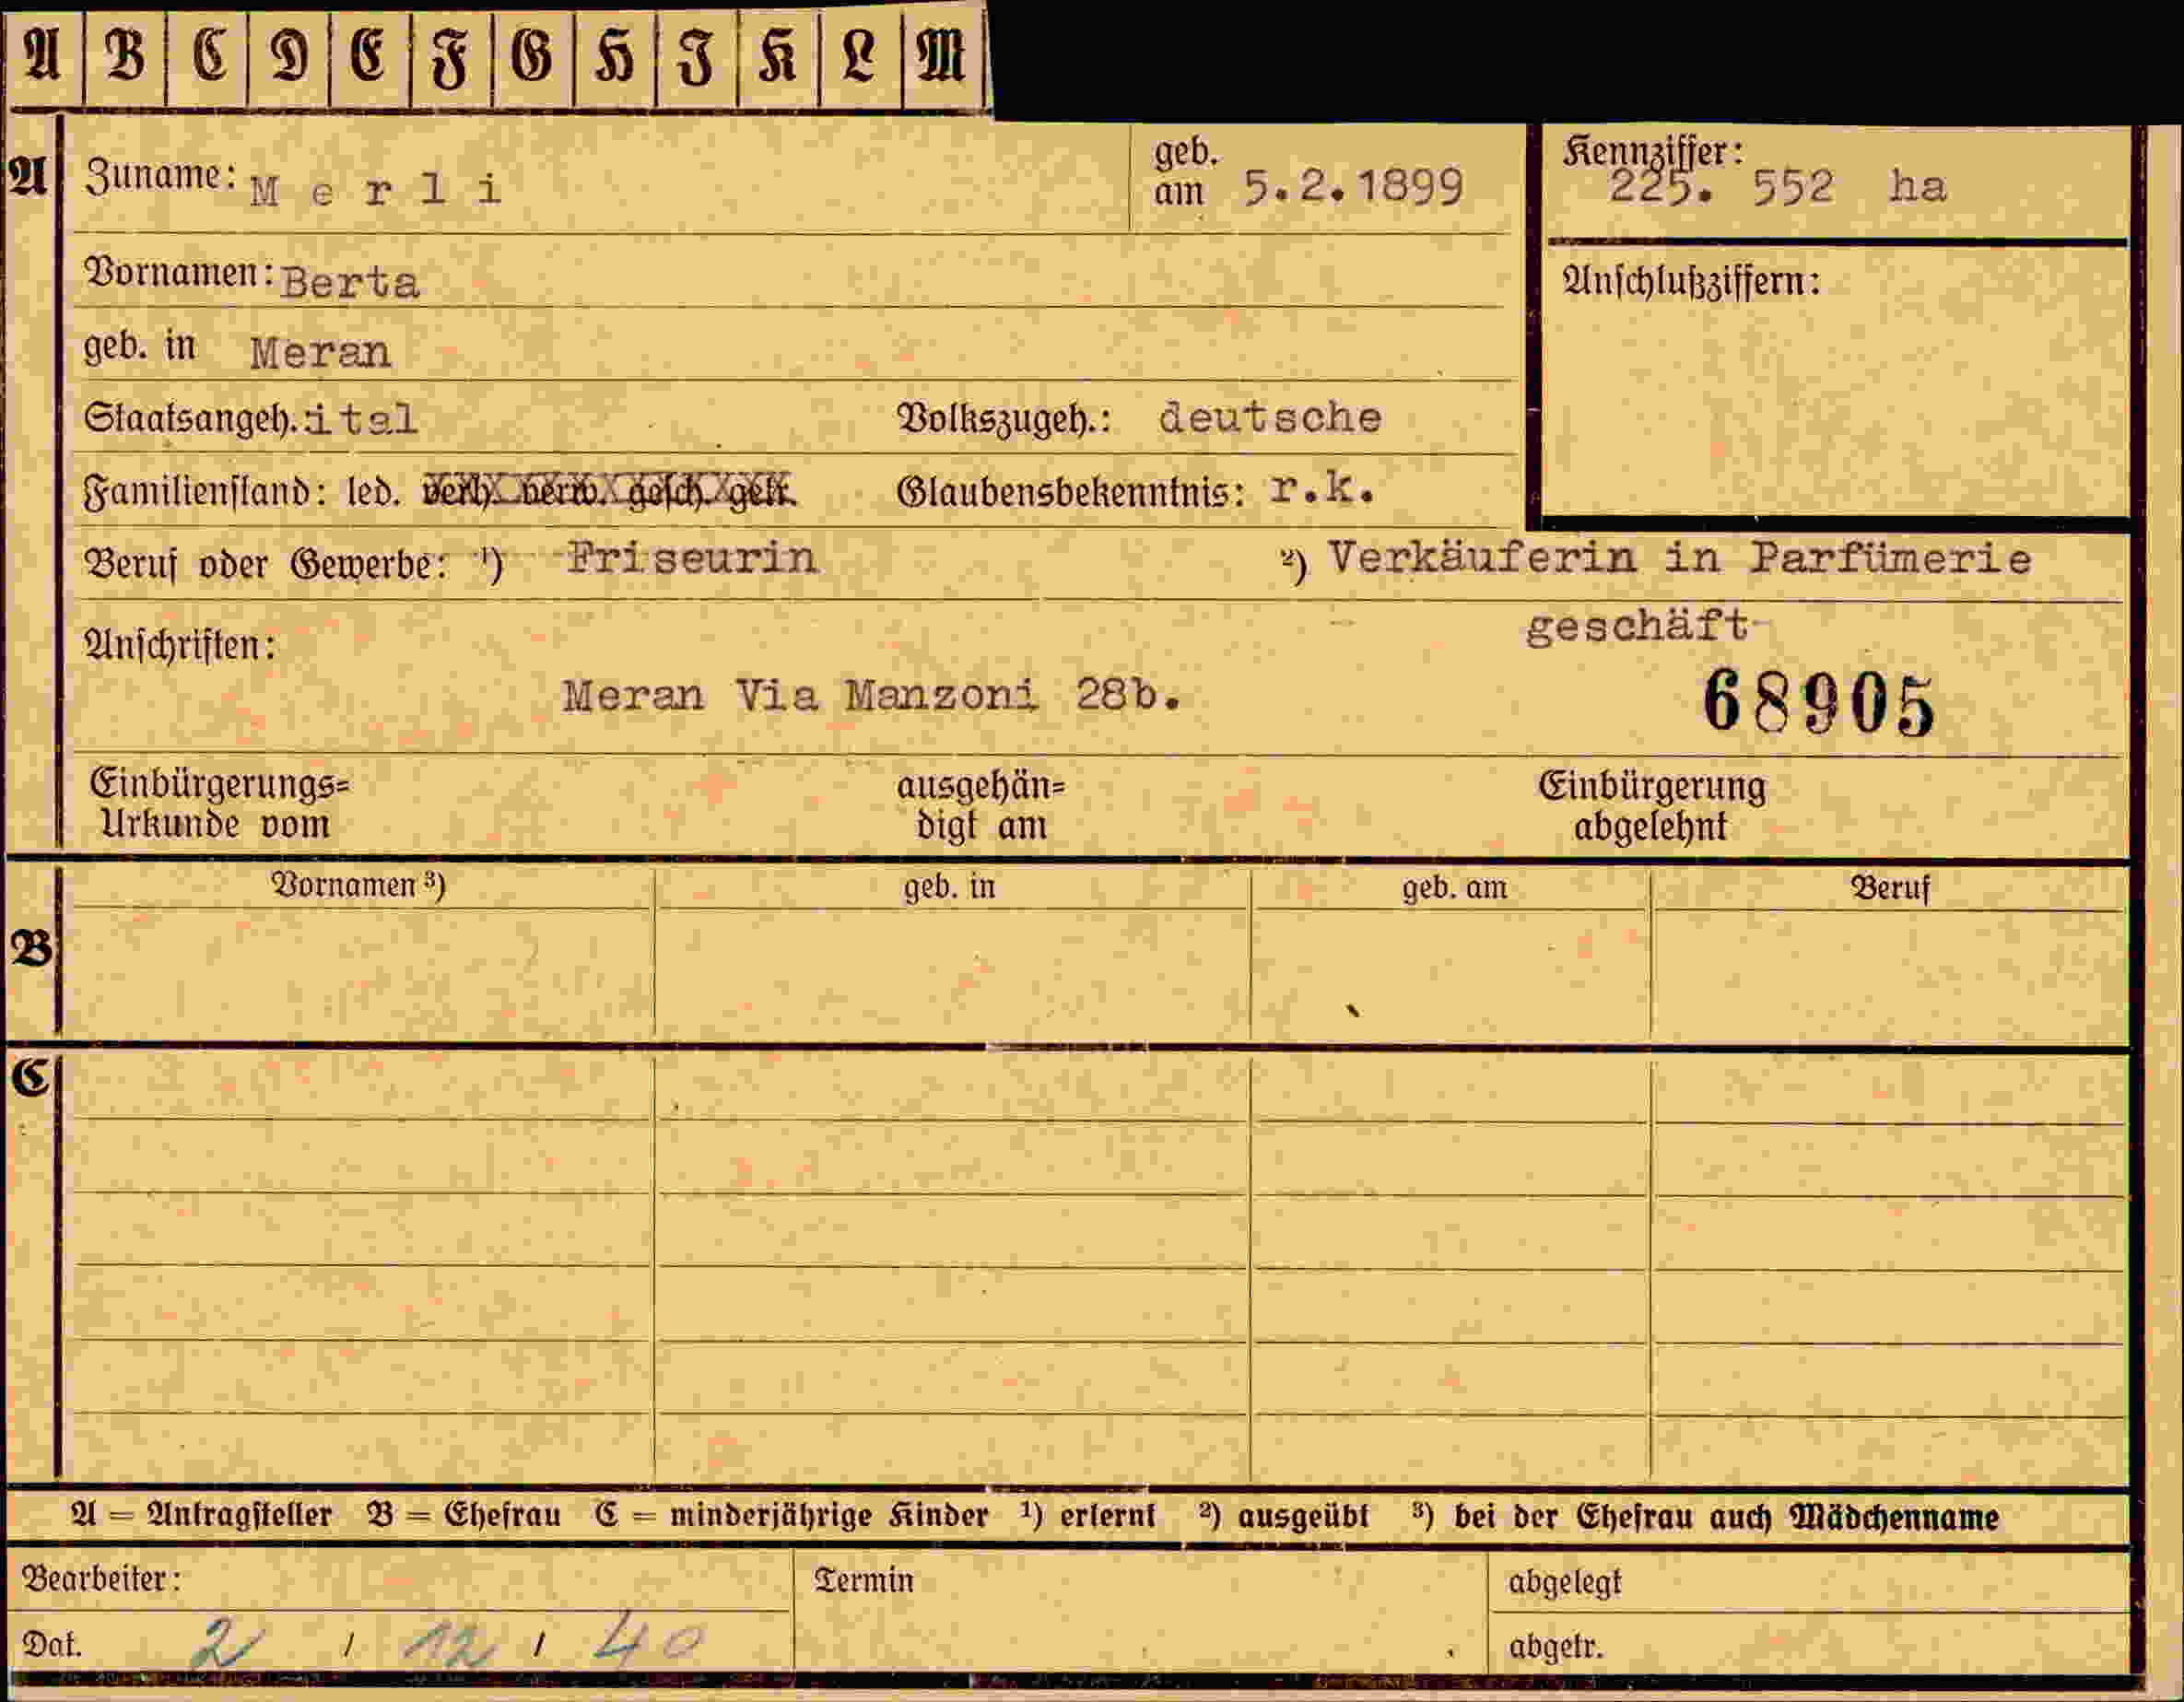 A B C D E F G H I K L M
A Zuname: M e r l i geb. am 5.2.1899 Kennziffer: 225. 552 ha
Vornamen: Berta Anschlußziffern:
geb. in Meran
Staatsangeh. ital Volkszugeh.: deutsche
Familienstand: led. verh. verw. gesch. getr. Glaubensbekenntnis: r.k.
Beruf oder Gewerbe: ¹) Friseurin ²) Verkäuferin in Parfümerie
geschäft-
Anschriften:
Meran Via Manzoni 28b. 68905
Einbürgerungs= ausgehän= Einbürgerung
Urkunde vom digt am abgelehnt
Vornamen ³) geb. in geb. am Beruf
B
C
A = Antragsteller B = Ehefrau C = minderjährige Kinder ¹) erlernt ²) ausgeübt ³) bei der Ehefrau auch Mädchenname
Bearbeiter: Termin abgelegt
Dat. 2 / 12 / 40 abgetr.